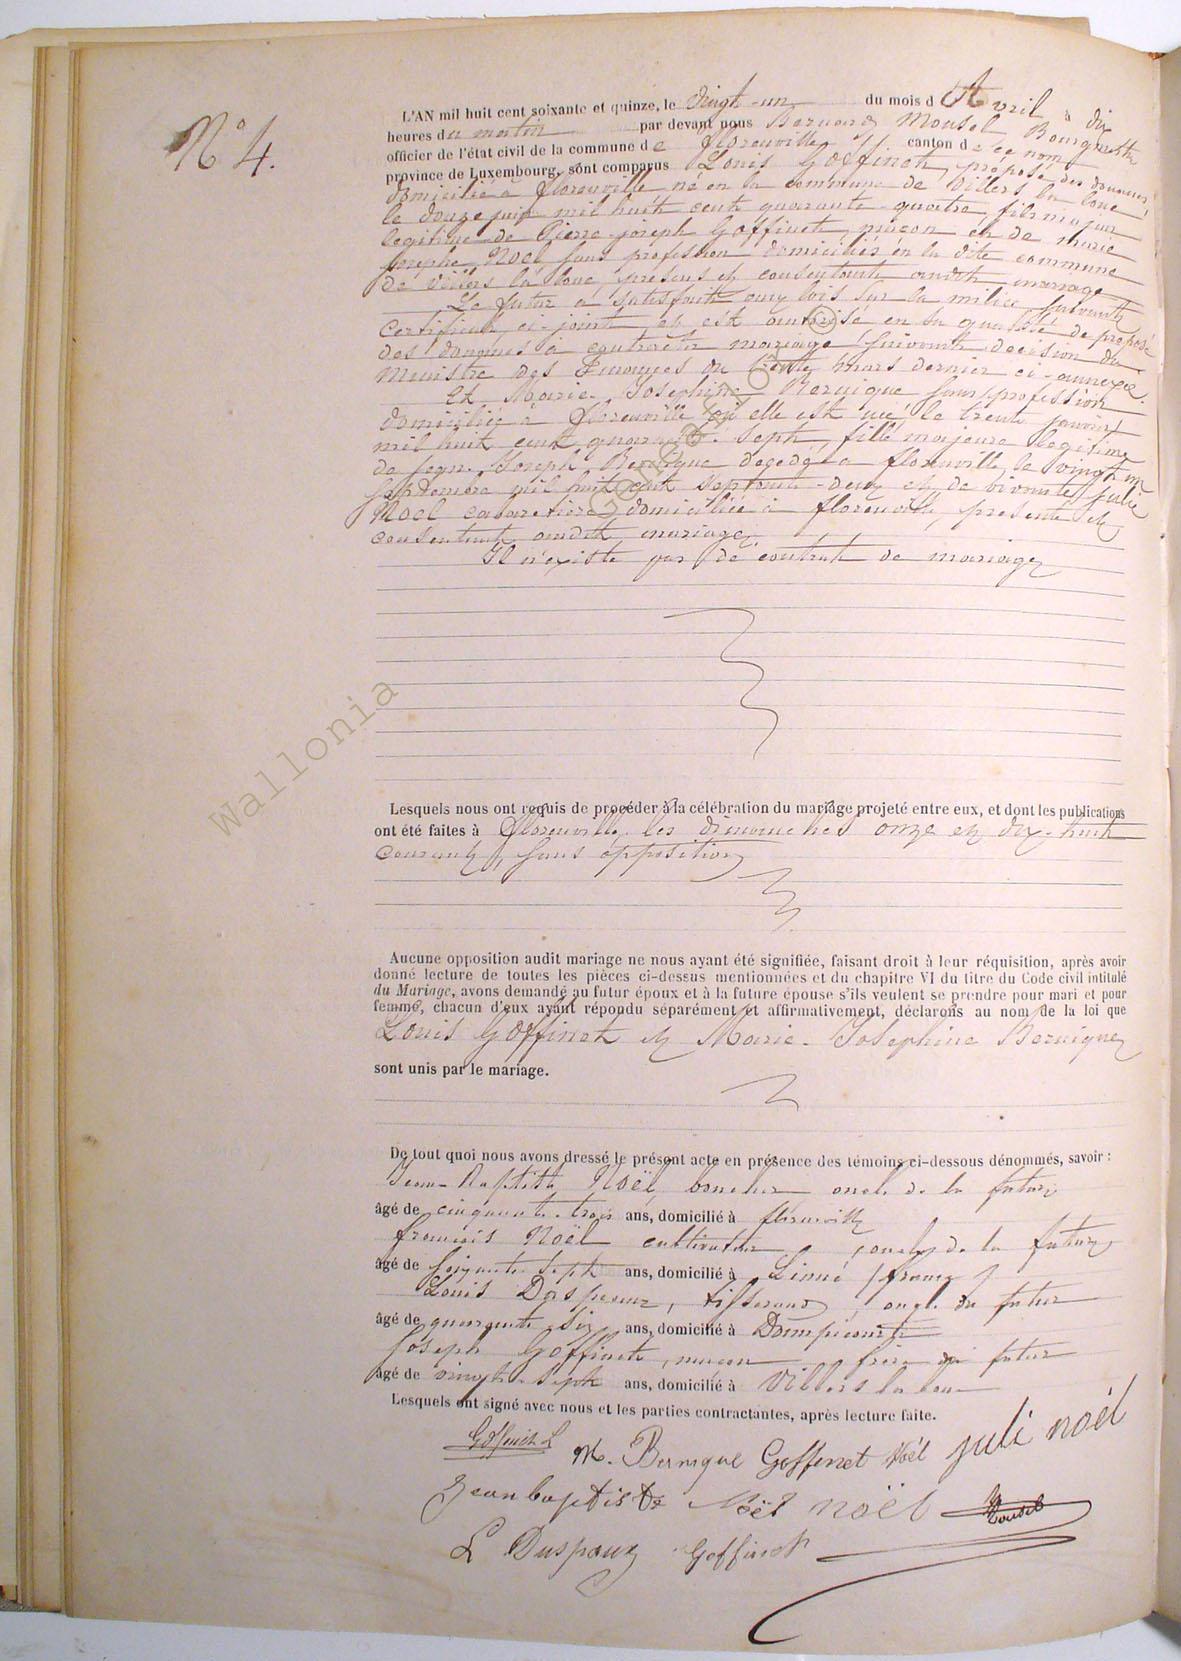 N° 4.
L'AN mil huit cent soixante et quinze, le vingt-un du mois d'Avril à dix
heures du matin par devant nous Bernard Mousel Bourgmestre
officier de l'état civil de la commune de Florenville canton de ce nom
province de Luxembourg, sont comparus Louis Goffinet, préposé des douanes,
domicilié à Florenville né en la commune de Villers la loue
le douze juin mil huit cent quarante-quatre, fils majeur
legitime de Pierre-joseph Goffinet, maçon et de marie
josephe Noel sans profession domiciliés en la dite commune
de Villers la loue, présens et consentants audit mariage
Le futur a satisfait aux lois sur la milice suivant
certificat ci-joint et est autorisé en sa qualité de préposé
des douanes à contracter mariage suivant décision du
Ministre des Finances du trente mars dernier ci-annexée.
Et Marie-Josephine Bernique sans profession
domiciliée à Florenville où elle est née le trente janvier
mil huit cent quarante-sept, fille majeure legitime
de feu Joseph Bernique decedé à florenville le vingt un
septembre mil huit cent septante-deux et de vivante julie
Noel cabaretière domiciliée à florenville, présente et
consentante audit mariage.
Il n'existe pas de contrat de mariage
Wallonia
Lesquels nous ont requis de procéder à la célébration du mariage projeté entre eux, et dont les publications
ont été faites à Florenville, les dimanches onze et dix-huit
courant, sans opposition
Aucune opposition audit mariage ne nous ayant été signifiée, faisant droit à leur réquisition, après avoir
donné lecture de toutes les pièces ci-dessus mentionnées et du chapitre VI du titre du Code civil intitulé
du Mariage, avons demandé au futur époux et à la future épouse s'ils veulent se prendre pour mari et pour
femme, chacun d'eux ayant répondu séparément et affirmativement, déclarons au nom de la loi que
Louis Goffinet et Marie-Josephine Bernique
sont unis par le mariage.
De tout quoi nous avons dressé le présent acte en présence des témoins ci-dessous dénommés, savoir :
Jean-Baptiste Noël, boucher oncle de la future
âgé de cinquante-trois ans, domicilié à florenville
françois Noël cultivateur, oncle de la future
âgé de soixante-sept ans, domicilié à Linné (france)
Louis Daspeaux, tisserand, oncle du futur
âgé de quarante six ans, domicilié à Dampicourt
Joseph Goffinet, maçon frère du futur
âgé de vingt-sept ans, domicilié à Villers la loue
Lesquels ont signé avec nous et les parties contractantes, après lecture faite.
Goffinet L
M. Bernique Goffinet Noël juli noël
Jean baptiste Noël noël Mousel
L Duspaux Goffinet